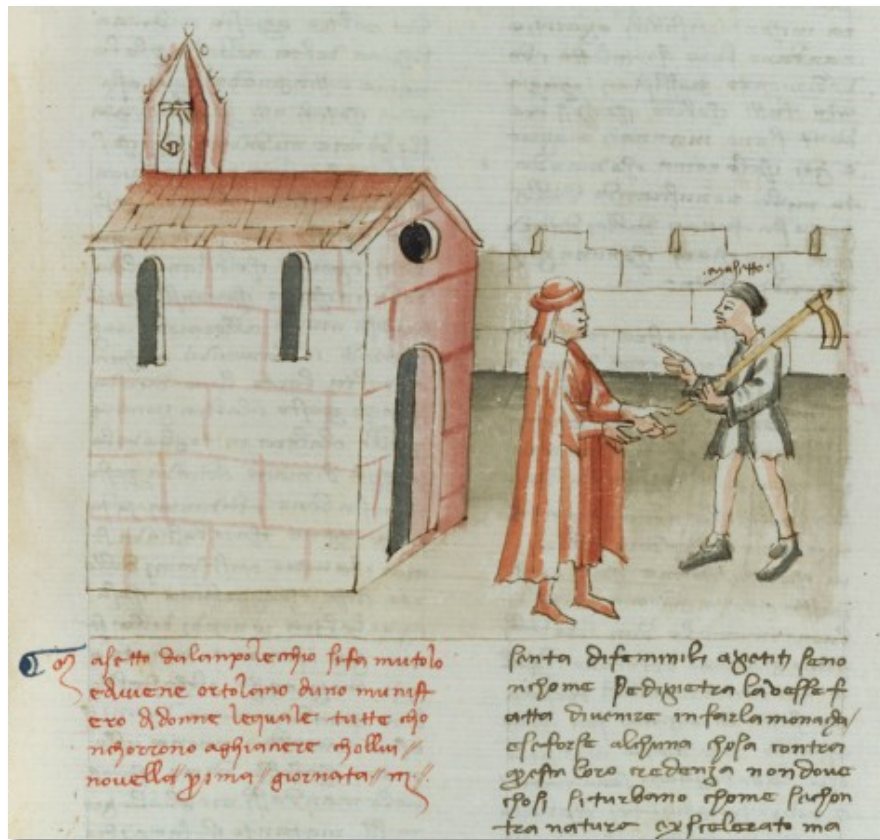 masetto
Masetto dalanpolecchio sifa mutolo
ediviene ortolano duno munist
ero di donne lequale tutte cho
nchorrono aghiacere chollui //
novella // prima // giornata // iii //
santa difeminili apetiti seno
nchome se di pietra lavesse f
atta divenire infarlamonacha /
eseforse alchuna chosa contra
questa loro credenza nondove
chosi siturbano chome sechon
tra natura scelerato ma